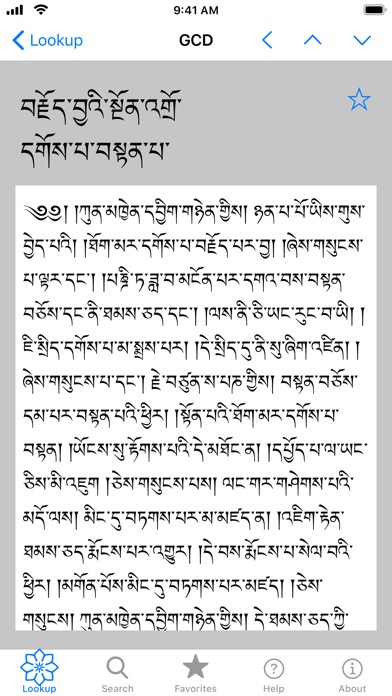 9:41 AM
Lookup
GCD
བརྗོད་བྱའི་སྔོན་འགྲོ་
དགོས་པ་བསྟན་པ་
༄༅། །ཀུན་མཁྱེན་དབྱིག་གཉེན་གྱིས། ཉན་པ་པོ་ཡིས་གུས་
བྱེད་པའི། །ཐོག་མར་དགོས་པ་བརྗོད་པར་བྱ། །ཞེས་གསུངས་
པ་ལྟར་དང་། །པཎྜི་ཏ་ཟླ་བ་མངོན་པར་དགའ་བས་བསྟན་
བཅོས་དང་ནི་ཐམས་ཅད་དང་། །ལས་ནི་ཅི་ཡང་རུང་བ་ཡི། །
ཇི་སྲིད་དགོས་པ་མ་སྨྲས་པར། །དེ་སྲིད་དུ་ནི་སུ་ཞིག་འཛིན། །
ཞེས་གསུངས་པ་དང་། རྗེ་བཙུན་ས་པཎ་གྱིས། བསྟན་བཅོས་
དམ་པར་བསྟན་པའི་ཕྱིར། །སྟོན་པའི་ཐོག་མར་དགོས་པ་
བསྟན། །ཡོངས་སུ་རྟོགས་པའི་དེ་མཐོང་ན། །དཔྱོད་པ་ལ་ཡང་
ཅིས་མི་འཇུག །ཅེས་གསུངས་པས། ལང་གར་གཤེགས་པའི་
མདོ་ལས། མིང་དུ་བཏགས་པར་མ་མཛད་ན། །འཇིག་རྟེན་
ཐམས་ཅད་རྨོངས་པར་འགྱུར། །དེ་བས་རྨོངས་པ་སེལ་བའི་
ཕྱིར། །མགོན་པོས་མིང་དུ་བཏགས་པར་མཛད། །ཅེས་
གསུངས། ཀུན་མཁྱེན་དབྱིག་གཉེན་གྱིས། དེ་ཐམས་ཅད་ཀྱི་
Lookup
Search
Favorites
Help
About